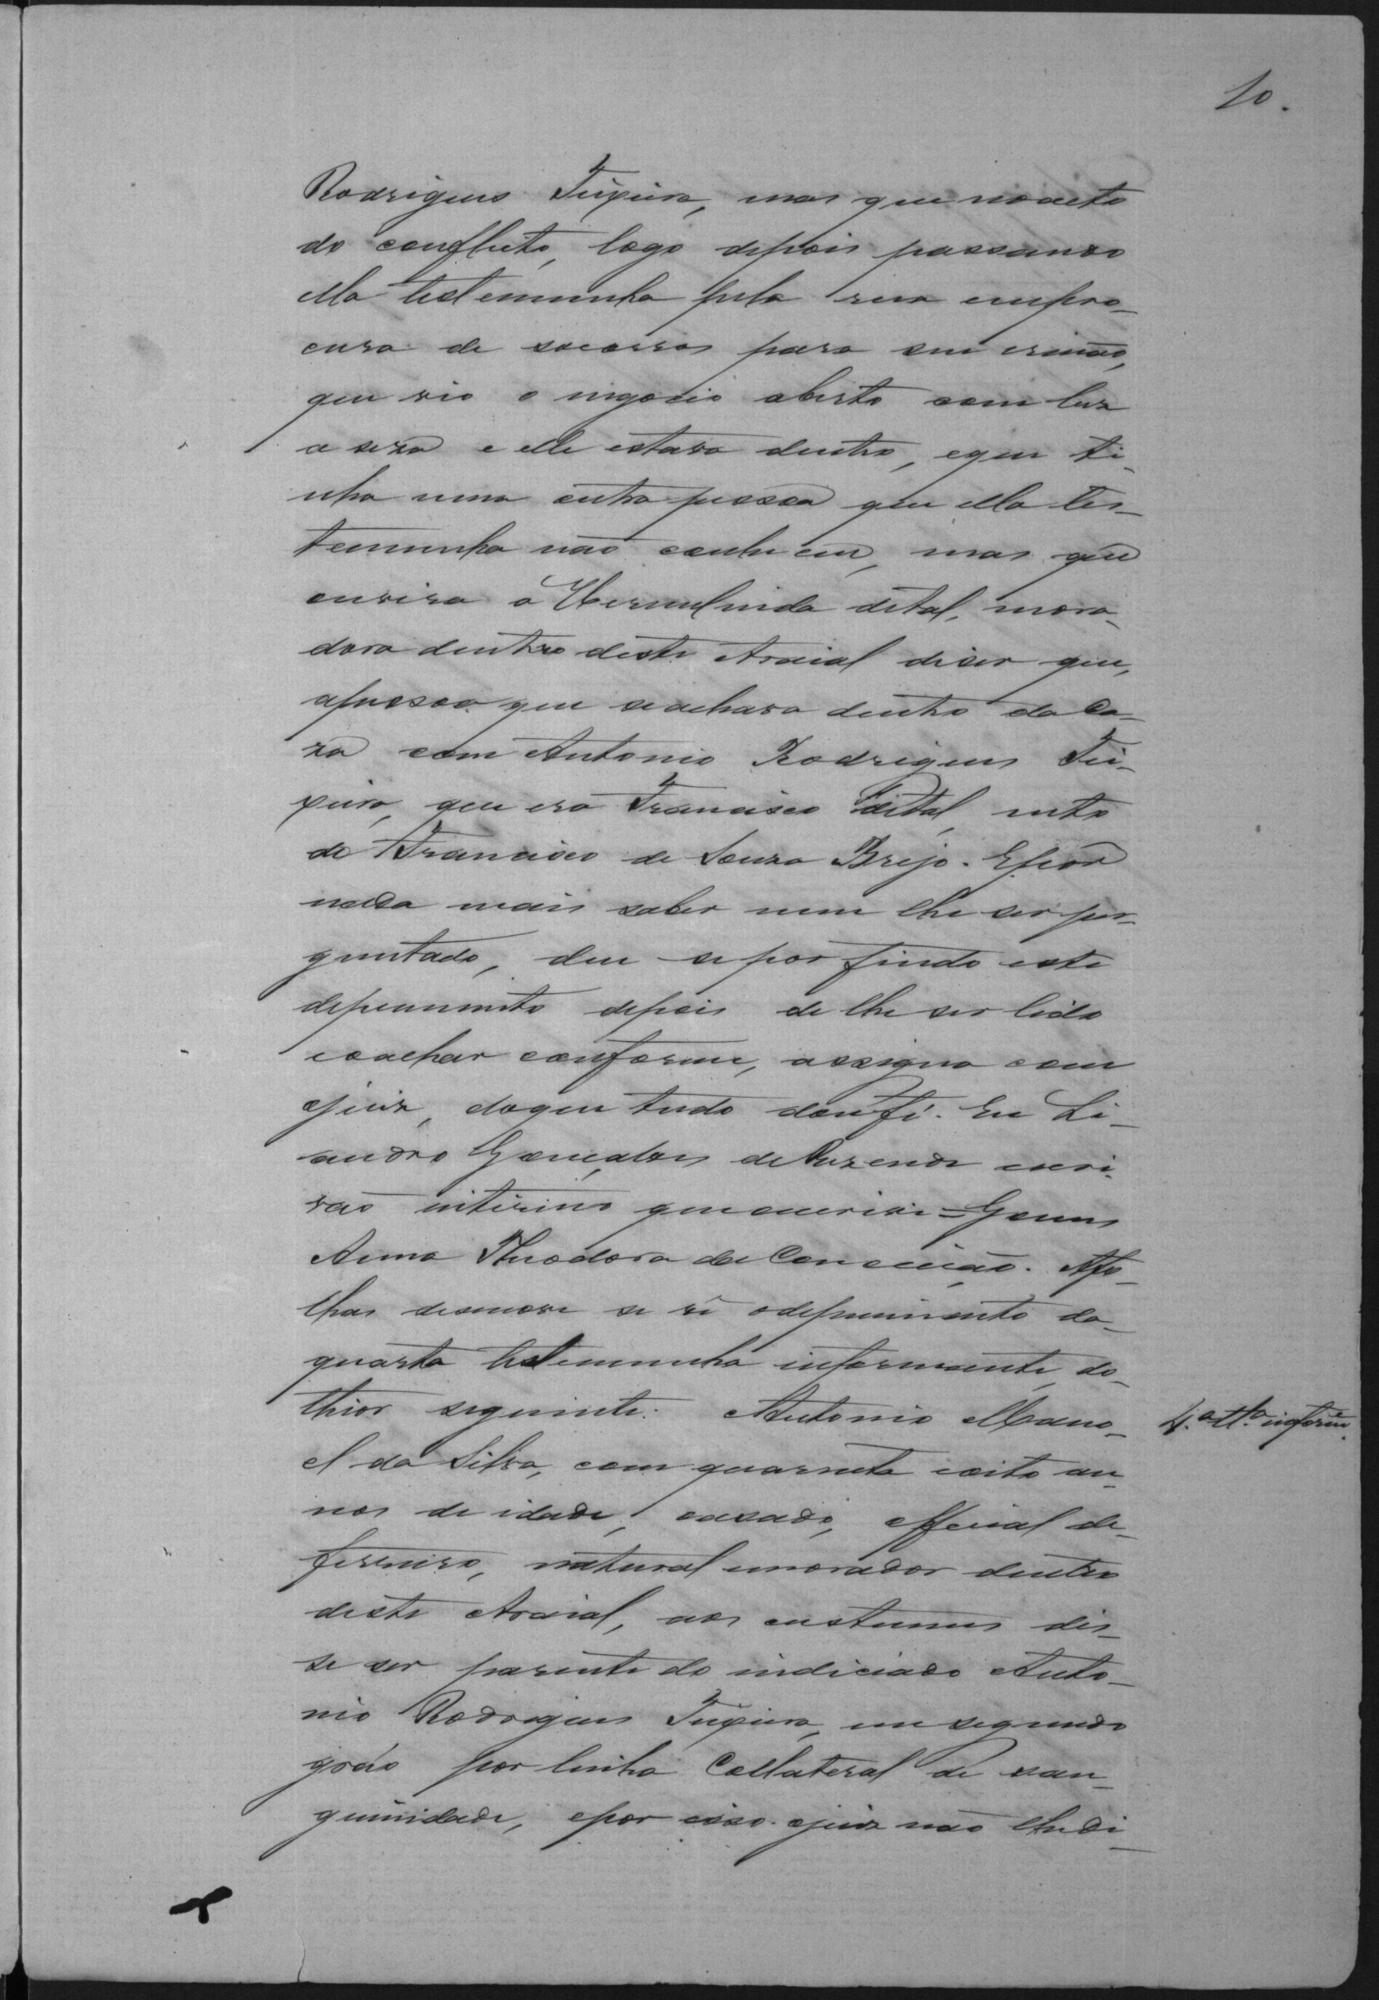 10.
Rodrigues Teixeira, mas que no acto
do conflicto, logo depois passando
ella testemunha pela rua empro-
cura de socorros para seu irmão,
que vio o negocio aberto com luz
a seza e elle estava dentro, e que ti-
nha uma outra pessoa que ella tes-
temunha não conheceu, mas que
ouvira a Hermelinda de tal, mora-
dora dentro deste Arraial diser que,
apessoa que se achava dentro da ca-
za com Antonio Rodrigues Tei-
xeira, que era Francisco de tal, neto
de Francisco de Souza Brejo. E por
nada mais saber nem lhe ser per-
guntado, deu se por findo este
depoimento depois de lhe ser lido
e o achar conforme, assigna com
o juiz, do que tudo dou fé. Eu Li-
andro Gonçalves de Rezende escri-
vão interino que escrevi = Gomes
Anna Theodora da Conceição. Afo-
lhas desenove se vê o depoimento da
quarta testemunha informante, do
thior seguinte: Antonio Mano-
el da Silva, com quarenta e oito an-
nos de idade, casado, official de
ferreiro, natural e morador dentro
deste Arraial, aos costumes dis-
se ser parente do indiciado Anto-
nio Rodrigues Teixeira, em segundo
gráo por linha Collateral de san-
guinidade, e por isso o juiz não lhe di-
4.ª tt.ª inform.